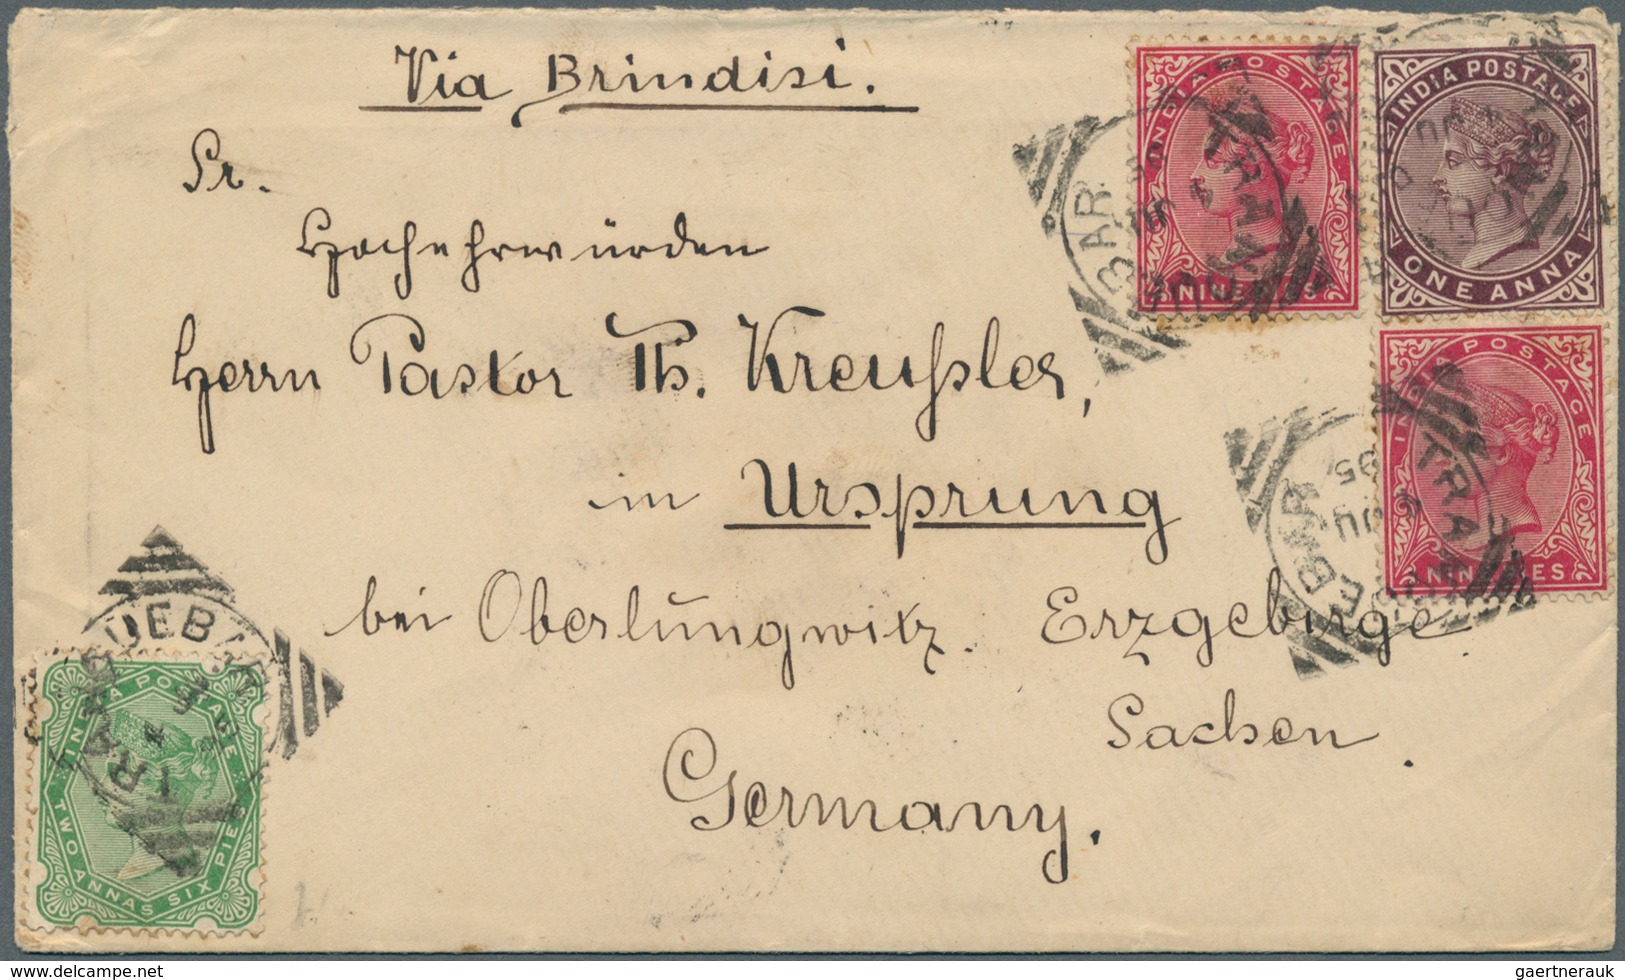 Via Brindisi.
Sr.
Hochehrwürden
Herrn Pastor Th. Kreußler,
in Ursprung
bei Oberlungwitz. Erzgebirge
Sachsen.
Germany.
INDIA POSTAGE
NINE PIES
INDIA POSTAGE
ONE ANNA
INDIA POSTAGE
NINE PIES
INDIA POSTAGE
TWO ANNAS SIX PIES
TRANQUEBAR
TRANQUEBAR
95
TRANQUEBAR
© www.delcampe.net
gaertnerauk